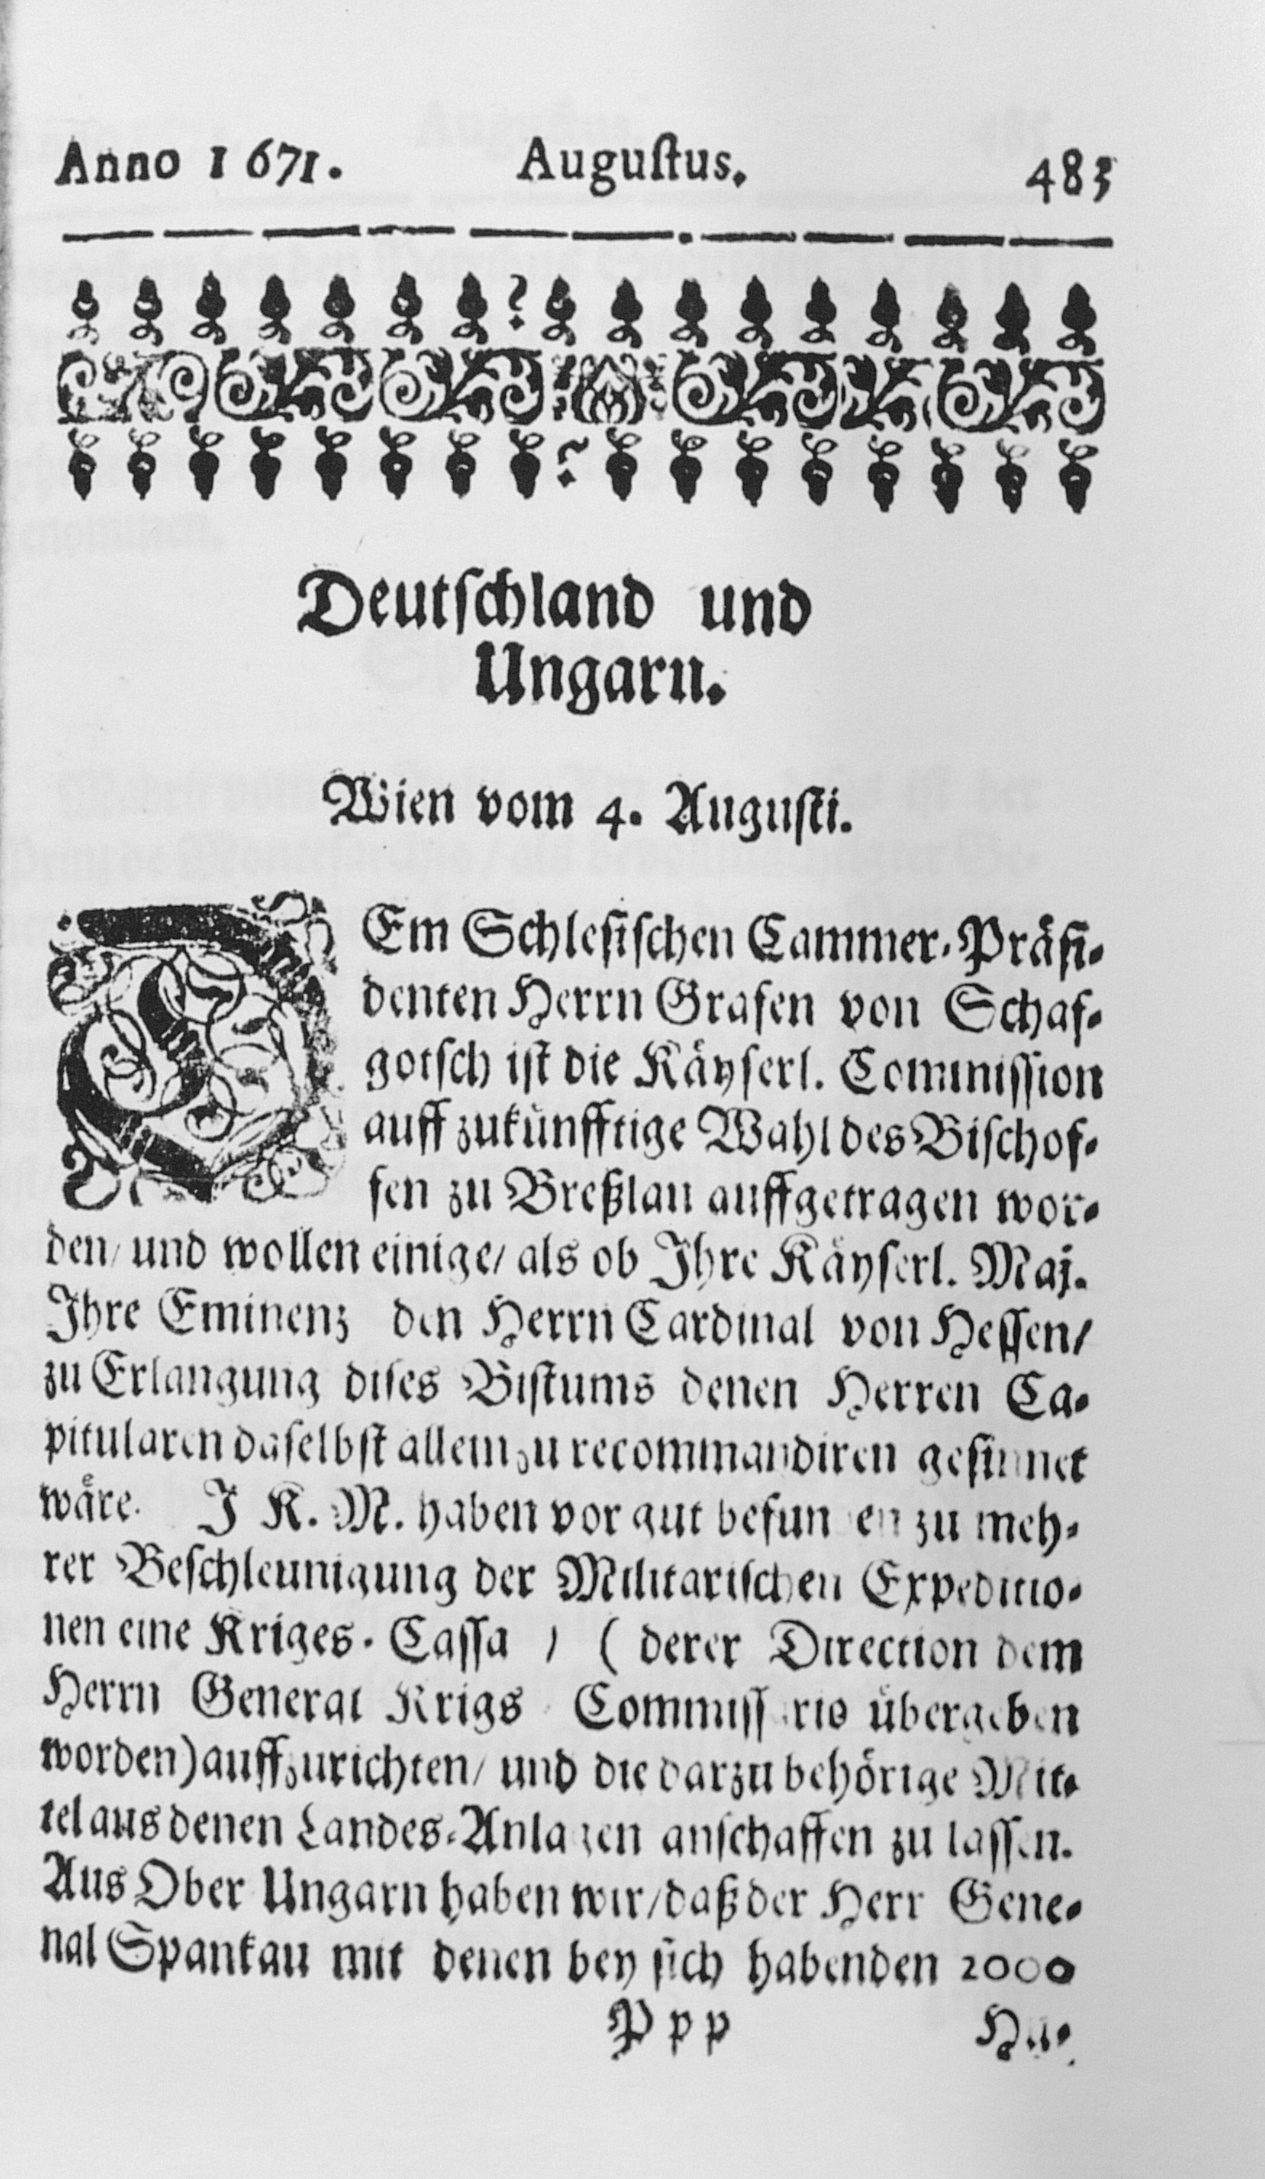 Anno 1671. Augustus. 483
Deutschland und
Ungarn.
Wien vom 4. Augusti.
DEm Schlesischen Cammer-Präsi-
denten Herrn Grafen von Schaf-
gotsch ist die Käyserl. Commission
auff zukünfftige Wahl des Bischof-
fen zu Breßlau auffgetragen wor-
den/ und wollen einige/ als ob Ihre Käyserl. Maj.
Ihre Eminenz den Herrn Cardinal von Hessen/
zu Erlangung dises Bistums denen Herren Ca-
pitularen daselbst allein zu recommandiren gesinnet
wäre. I K. M. haben vor gut befunden zu meh-
rer Beschleunigung der Militarischen Expeditio-
nen eine Kriges-Cassa / ( derer Direction dem
Herrn General Krigs Commissario übergeben
worden) auffzurichten/ und die darzu behörige Mit-
tel aus denen Landes-Anlagen anschaffen zu lassen.
Aus Ober Ungarn haben wir/ daß der Herr Gene-
nal Spankau mit denen bey sich habenden 2000
Ppp Hu-